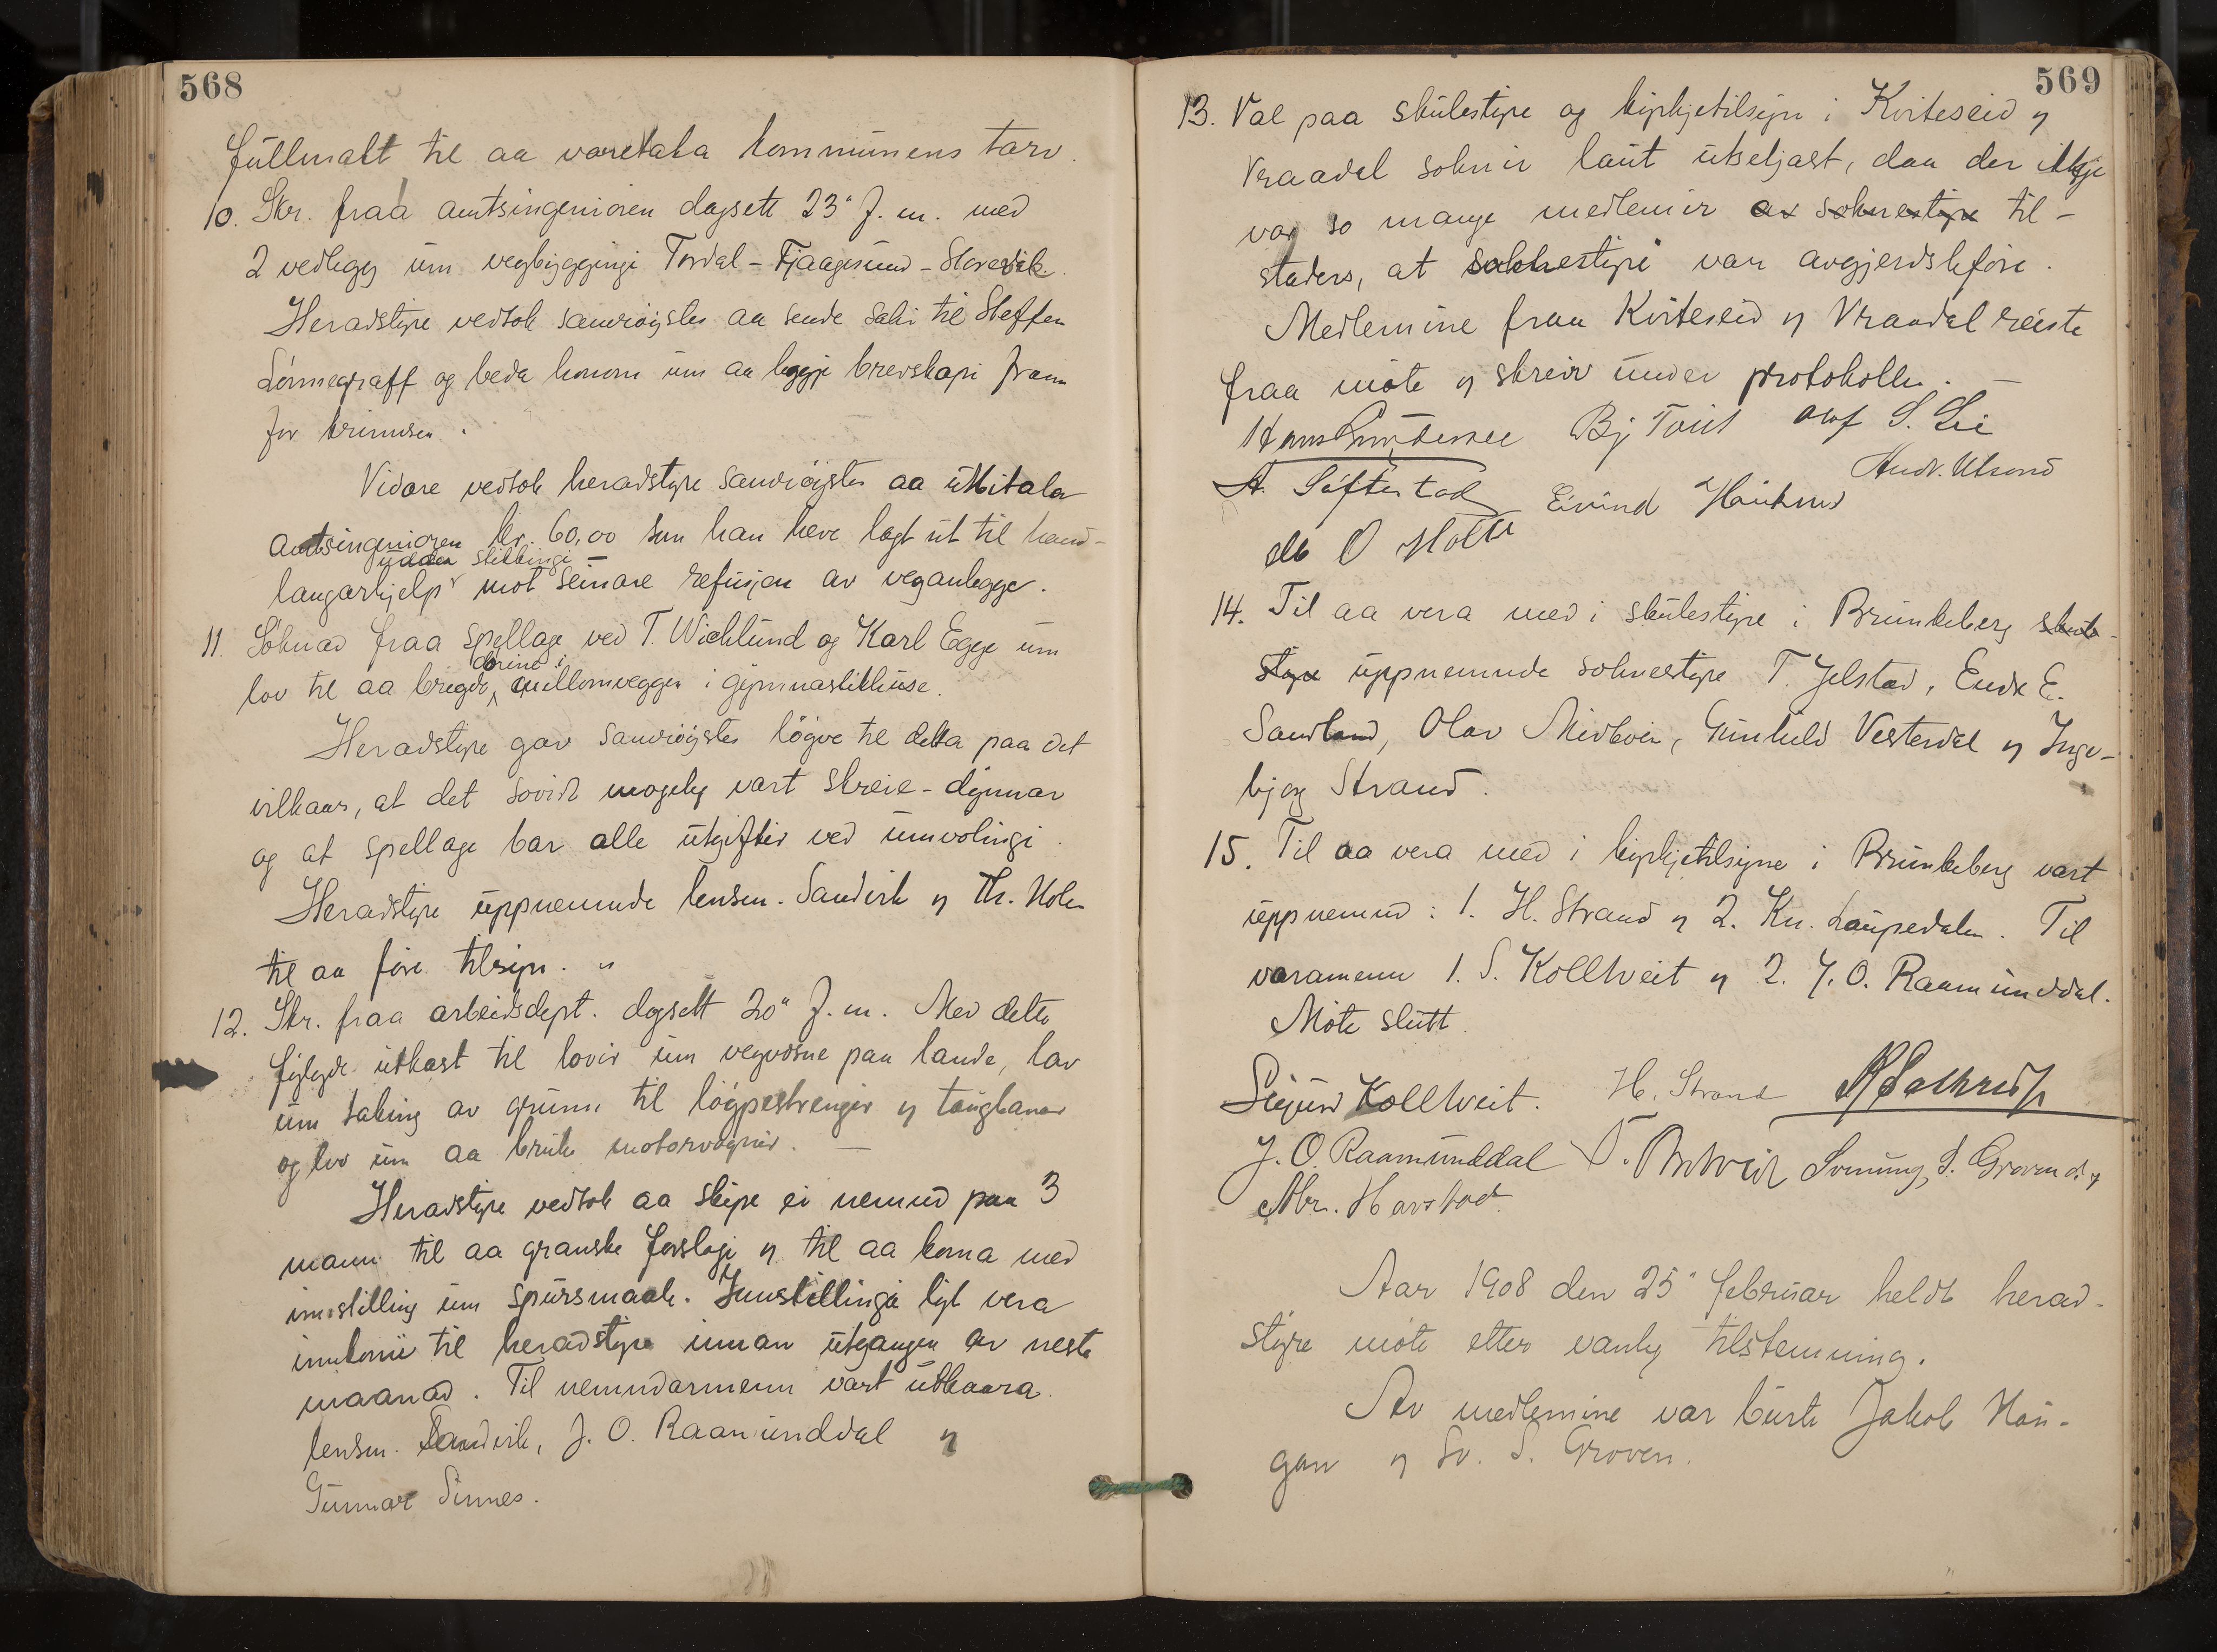 568
fullmakt til aa varetaka kommunens tarv.
10. Skr. fraa amtsingeniøren dagsett 23" f. m. med
2 vedlegg um vegbyggingi Tordal - Fjaagesund -
Heradstyre vedtok samrøystes aa sende saki til Steffen
Lønnegraff og beda honom um aa leggje brevskapi fram
for
Vidare vedtok heradstyre samrøystes aa utbitala
amtsingeniøren kr. 60,00 som han heve lagt ut til hand-
udder stikkingi
langarhjelp mot seinare refusjon av veganlegge.
11. Søknad fraa spellage ved T. Wichlund og Karl Egge um
dørine i
lov til aa brigde millomveggen i gymnastikhuse.
Heradstyre gav samrøystes løgve til detta paa det
vilkaar, at det sovidt mogeleg vart skreie-dynnar
og at spellage bar alle utgifter ved umvølingi
Heradstyre uppnemnde lensm. Sandvik og Th. Holen
til aa føre tilsyn. "
12. Skr. fraa arbeidsdept. dagsett 20" f. m. Med dette
fylgde utkast til lovir um vegvøsne paa lande, lov
um taking av grunn til løypestrengir og taugbanar
og lov um aa bruke motorvognir. —
Heradstyre vedtok aa skipe ei nemnd paa 3
mann til aa granske forslagi og til aa koma med
innstilling um spursmaale. Innstillingi lyt vera
innkomi til heradstyre innan utgangen av neste
maanad. Til nemndarmenn vart utkaara
lensm. Sandvik, J. O. Raamunddal og
Gunnar Sinnes.
569
13. Val paa skulestyre og kyrkjetilsyn i Kviteseid og
Vraadal soknir laut utsetjast, daa der ikkje
var so mange medlemir av soknestyre til-
stades, at soknestyri var avgjerdsføre.
Medlemine fraa Kviteseid og Vraadal reiste
fraa møte og skreiv under protokollen. —
Hans Bj Tout Olaf S. Lie
A. Søftestad Eivind Haukum Andr. Utsond
O Holte
14. Til aa vera med i skulestyre i Brunkeberg skule-
styre uppnemnde soknestyre T. Jelstad, Endr E.
Sandland, Olav Midtveit, Gunhild Vesterdal og Inge-
bjørg Strand.
15. Til aa vera med i kyrkjetilsyne i Brunkeberg vart
uppnemnd: 1. H. Strand og 2. Kn. Laupedalen. Til
varamenn 1. S. Kolltveit og 2. J. O. Raamunddal.
Møte slutt.
Sigurd Kolltveit. H. Strand
J. O. Raamunddal Svenung S. Groven
Abr. Havstad.
Aar 1908 den 25" februar heldt herad-
styre møte etter vanleg tilstemning.
Av medlemine var burte Jakob Hau-
gan og Sv. S. Groven.